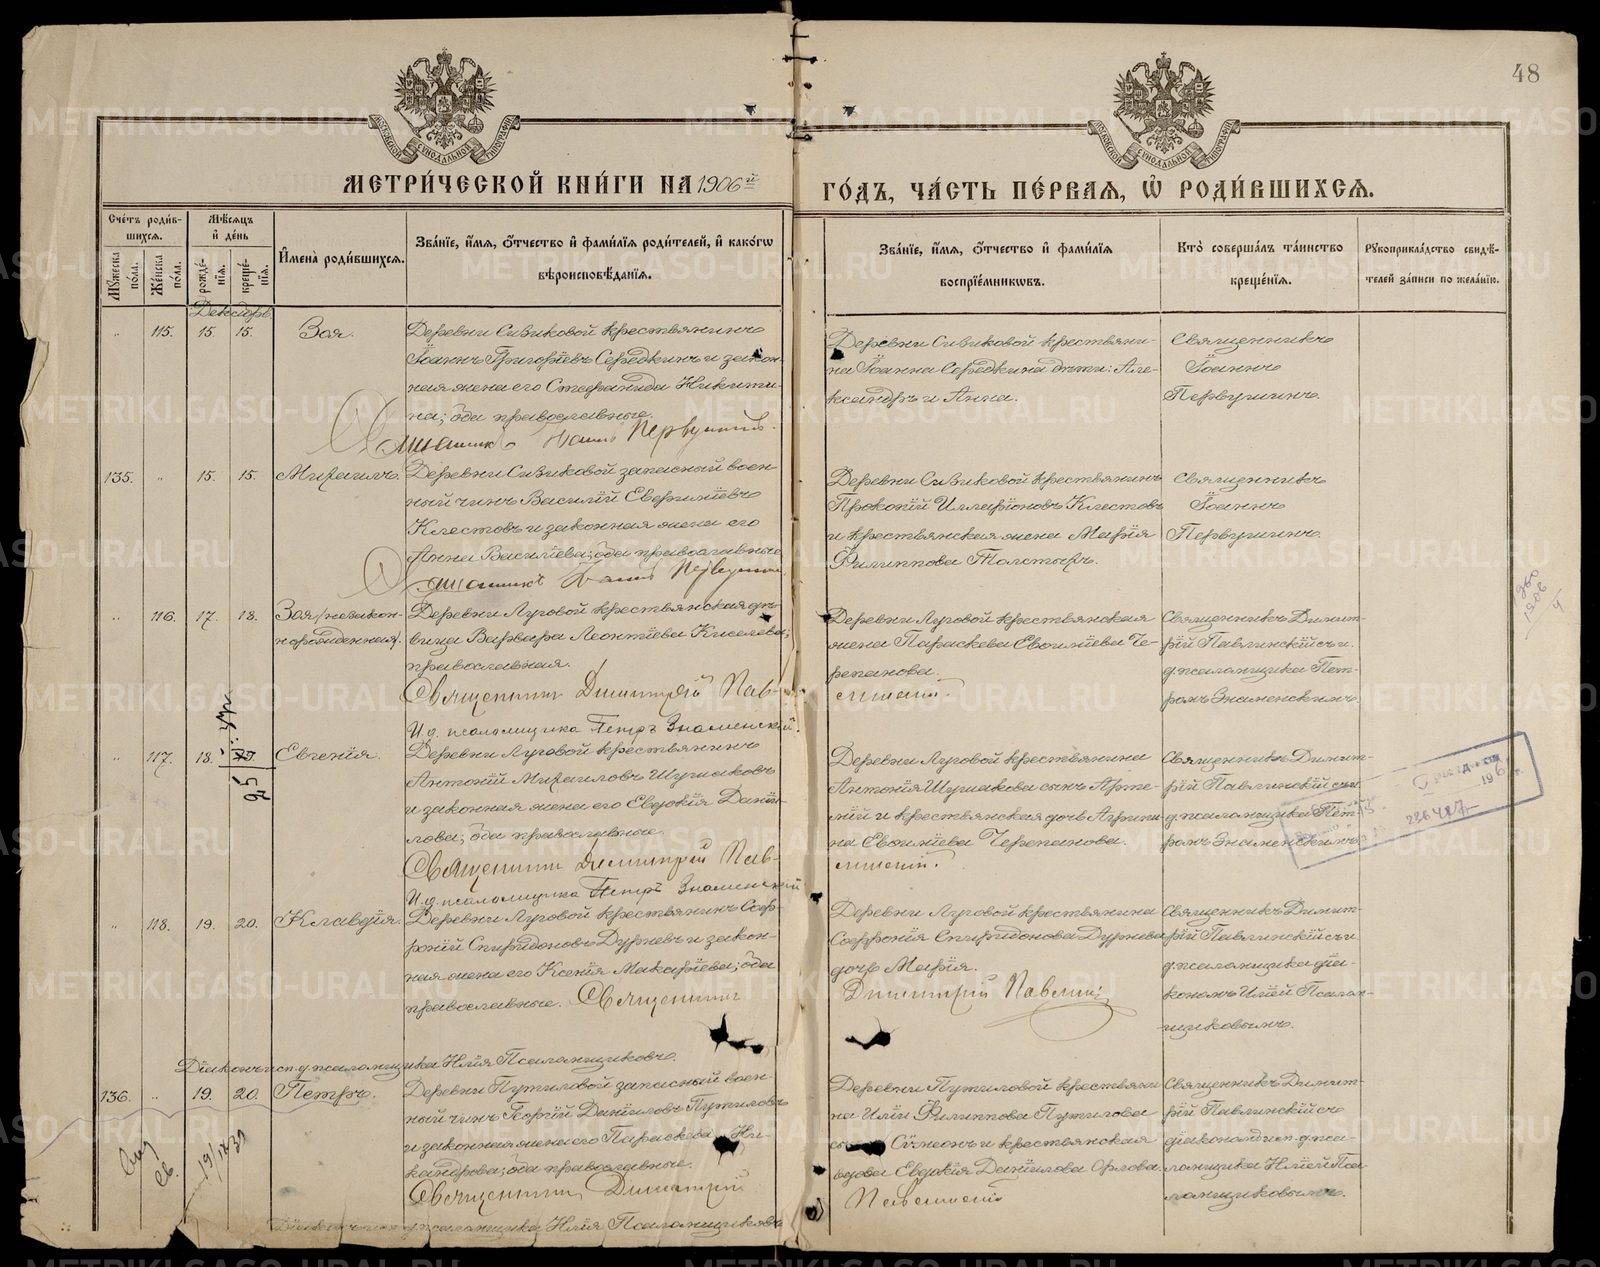 48
МОСКОВСКОЙ СѴНОДАЛЬНОЙ ТИПОГРАФІИ
МОСКОВСКОЙ СѴНОДАЛЬНОЙ ТИПОГРАФІИ
МЕТРИ́ЧЕСКОЙ КНИ́ГИ НА 1906й
ГО́ДЪ, ЧА́СТЬ ПЕ́РВАЯ, Ѽ РОДИ́ВШИХСЯ.
Сче́тъ роди́в-
шихся.
Мѣ́сяцъ
и҆ де́нь
Мꙋ́жеска по́ла.
Же́нска по́ла.
рожде́-нїя.
креще́-нїя.
И҆мена̀ роди́вшихся.
Зва́нїе, и҆́мя, ѻ҆́тчество и҆ фами́лїя роди́телей, и҆ како́гѡ
вѣроисповѣ́данїя.
Зва́нїе, и҆́мя, ѻ҆́тчество и҆ фами́лїя
воспрїе́мникѡвъ.
Кто̀ соверша́лъ та́инство
креще́нїя.
Рꙋкоприкла́дство свидѣ́-
телей за́писи по жела́нїю.
Декабрь
115. 15. 15. Зоя.
Деревни Сизиковой крестьянинъ
Іоаннъ Григоріевъ Середкинъ и закон-
ная жена его Стефанида Никити-
на; оба православные.
Священникъ Іоаннъ Первушинъ.
Деревни Сизиковой крестьяни-
на Іоанна Середкина дѣти: Але-
ксандръ и Анна.
Священникъ
Іоаннъ
Первушинъ.
135. 15. 15. Михаилъ.
Деревни Сизиковой запасный воен-
ный чинъ Василій
Клестовъ и законная жена его
Анна Васильева; оба православные.
Священникъ Іоаннъ Первушинъ
Деревни Сизиковой крестьянинъ
Прокопій Илларіоновъ Клестовъ
и крестьянская жена Марія
Филиппова Толстыхъ.
Священникъ
Іоаннъ
Первушинъ.
116. 17. 18. Зоя (незакон-
норожденная).
Деревни Луговой крестьянская дѣ-
вица Варвара Леонтіева Киселева;
православная.
Священникъ Димитрій Пав-
линскій.
И.д. псаломщика Петръ Знаменскій.
Деревни Луговой крестьянская
жена Параскева Евфиміева Че-
репанова.
Священникъ Димит-
рій Павлинскій съ и.
д. псаломщика Пет-
ромъ Знаменскимъ.
117. 18. Евгенія.
Деревни Луговой крестьянинъ
Антоній Михаиловъ Шушаковъ
и законная жена его Евдокія Даніи-
лова; оба православные.
Священникъ Димитрій Пав-
линскій.
И.д. псаломщика Петръ Знаменскій
Деревни Луговой крестьянина
Антонія Шушакова сынъ Арте-
мій и крестьянская дочь Агрипи-
на Евфиміева Черепанова.
Священникъ Димит-
рій Павлинскій съ и.
д. псаломщика Пет-
ромъ Знаменскимъ.
286427
118. 19. 20. Клавдія.
Деревни Луговой крестьянинъ Соф-
роній Спиридоновъ Дурневъ и закон-
ная жена его Ксенія Макаріева; оба
православные. Священникъ
Димитрій Павлинскій
Діаконъ исп. д. псаломщика Илія Псаломщиковъ.
Деревни Луговой крестьянина
Софронія Спиридонова Дурнева
дочь Марія.
Священникъ Димит-
рій Павлинскій съ и
д. псаломщика діа-
кономъ Иліей Псалом-
щиковымъ.
136. 19. 20. Петръ.
Деревни Путиловой запасный воен-
ный чинъ Георгій Даніиловъ Путиловъ
и законная жена его Параскева Ни-
кандрова; оба православные.
Священникъ Димитрій
Павлинскій
Діаконъ исп. д. псаломщика Илія Псаломщиковъ
Деревни Путиловой крестьяни-
на Иліи Филиппова Путилова
Сѵмеонъ и крестьянская
вдова Евдокія Даніилова Орлова
Священникъ Димит-
рій Павлинскій съ
діакономъ исп. д. пса-
ломщика Иліей Пса-
ломщиковымъ.